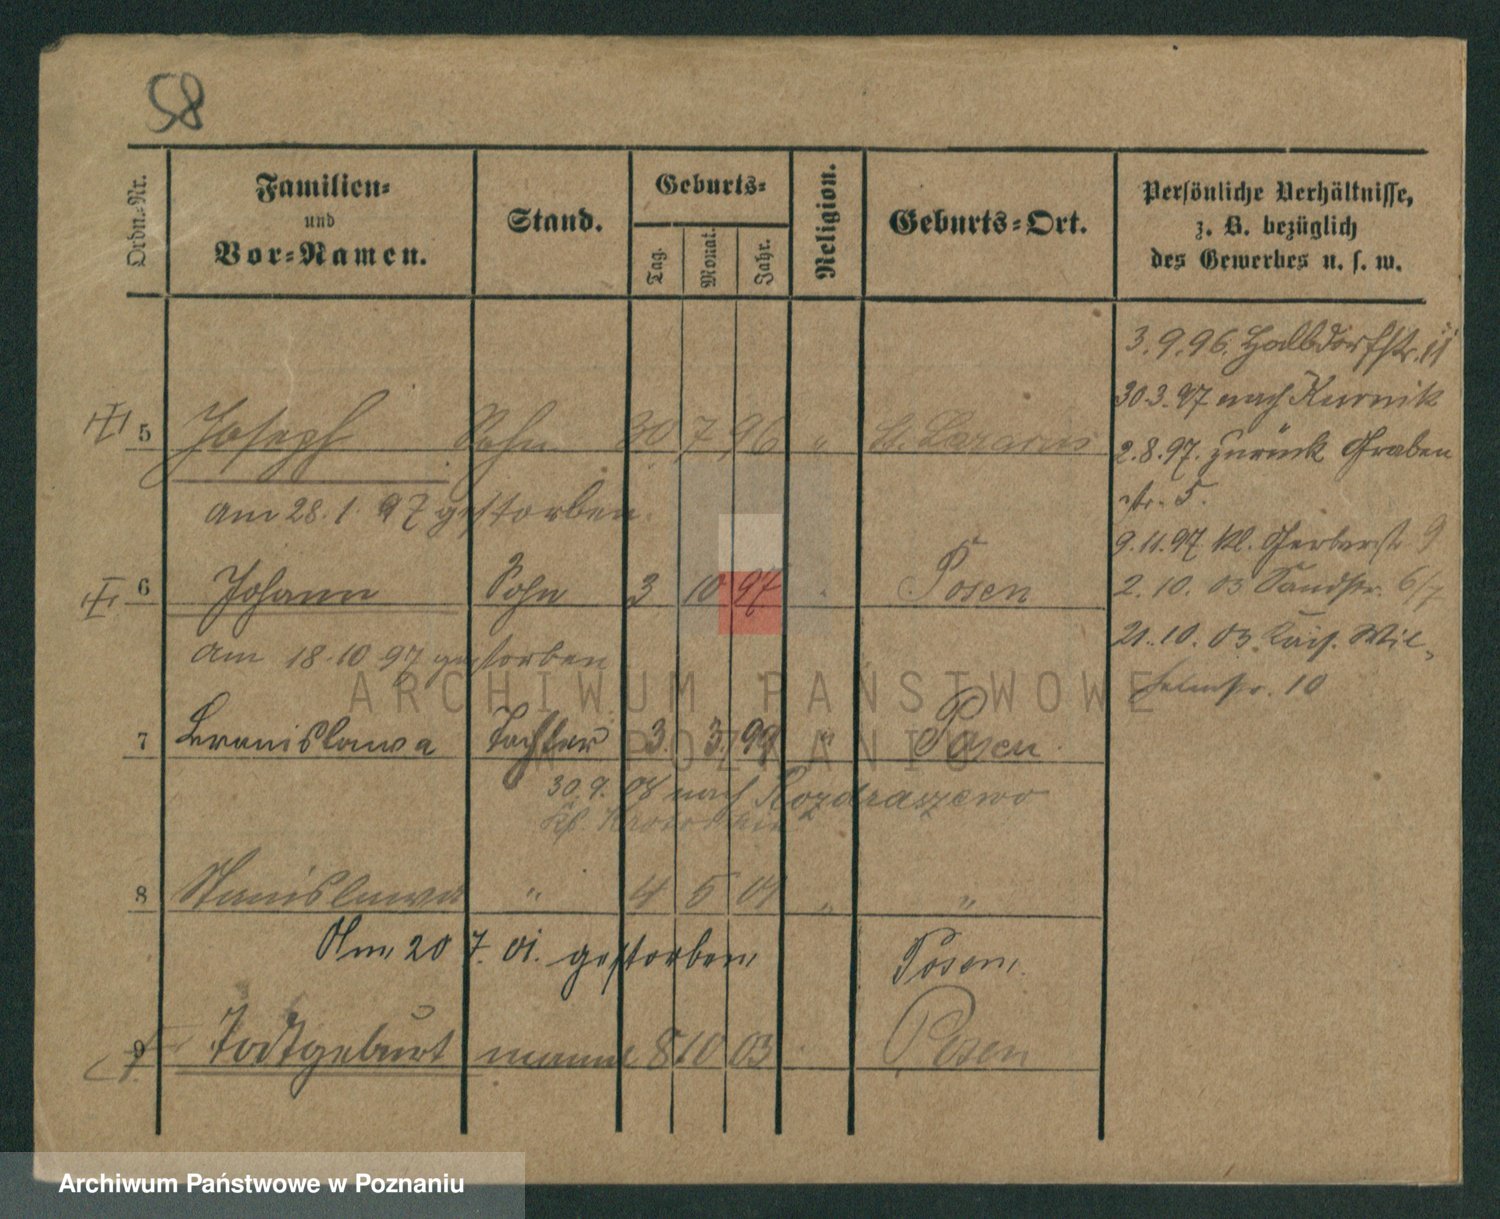 58
Ordn.-Nr.
Familien-
und
Vor-Namen.
Stand.
Geburts-
Tag.
Monat.
Jahr.
Religion.
Geburts-Ort.
Persönliche Verhältnisse,
z. B. bezüglich
des Gewerbes u. s. w.
3.9.96. Halbdorfstr. 11
30.3.97 nach Kurnik
5 Joseph Sohn 30 7 96 " St. Lazarus
2.8.97. zurück Graben
str. 5.
am 28.1.97 gestorben.
9.11.97 Kl. Gerberstr. 9
6 Johann Sohn 3 10 97 Posen
2.10.03 Sandstr. 6/7
am 18.10 97 gestorben
21.10.03. Kais. Wil-
helmstr. 10
ARCHIWUM PAŃSTWOWE
7 Bronislawa Tochter 3. 3. 99 " Posen
W POZNANIU
30.9.08 nach Rozdraszewo
8 Stanislawa " 4 5 01 " "
Am 20 7. 01. gestorben Posen.
9 Todtgeburt männl 8 10 03 Posen
Archiwum Państwowe w Poznaniu